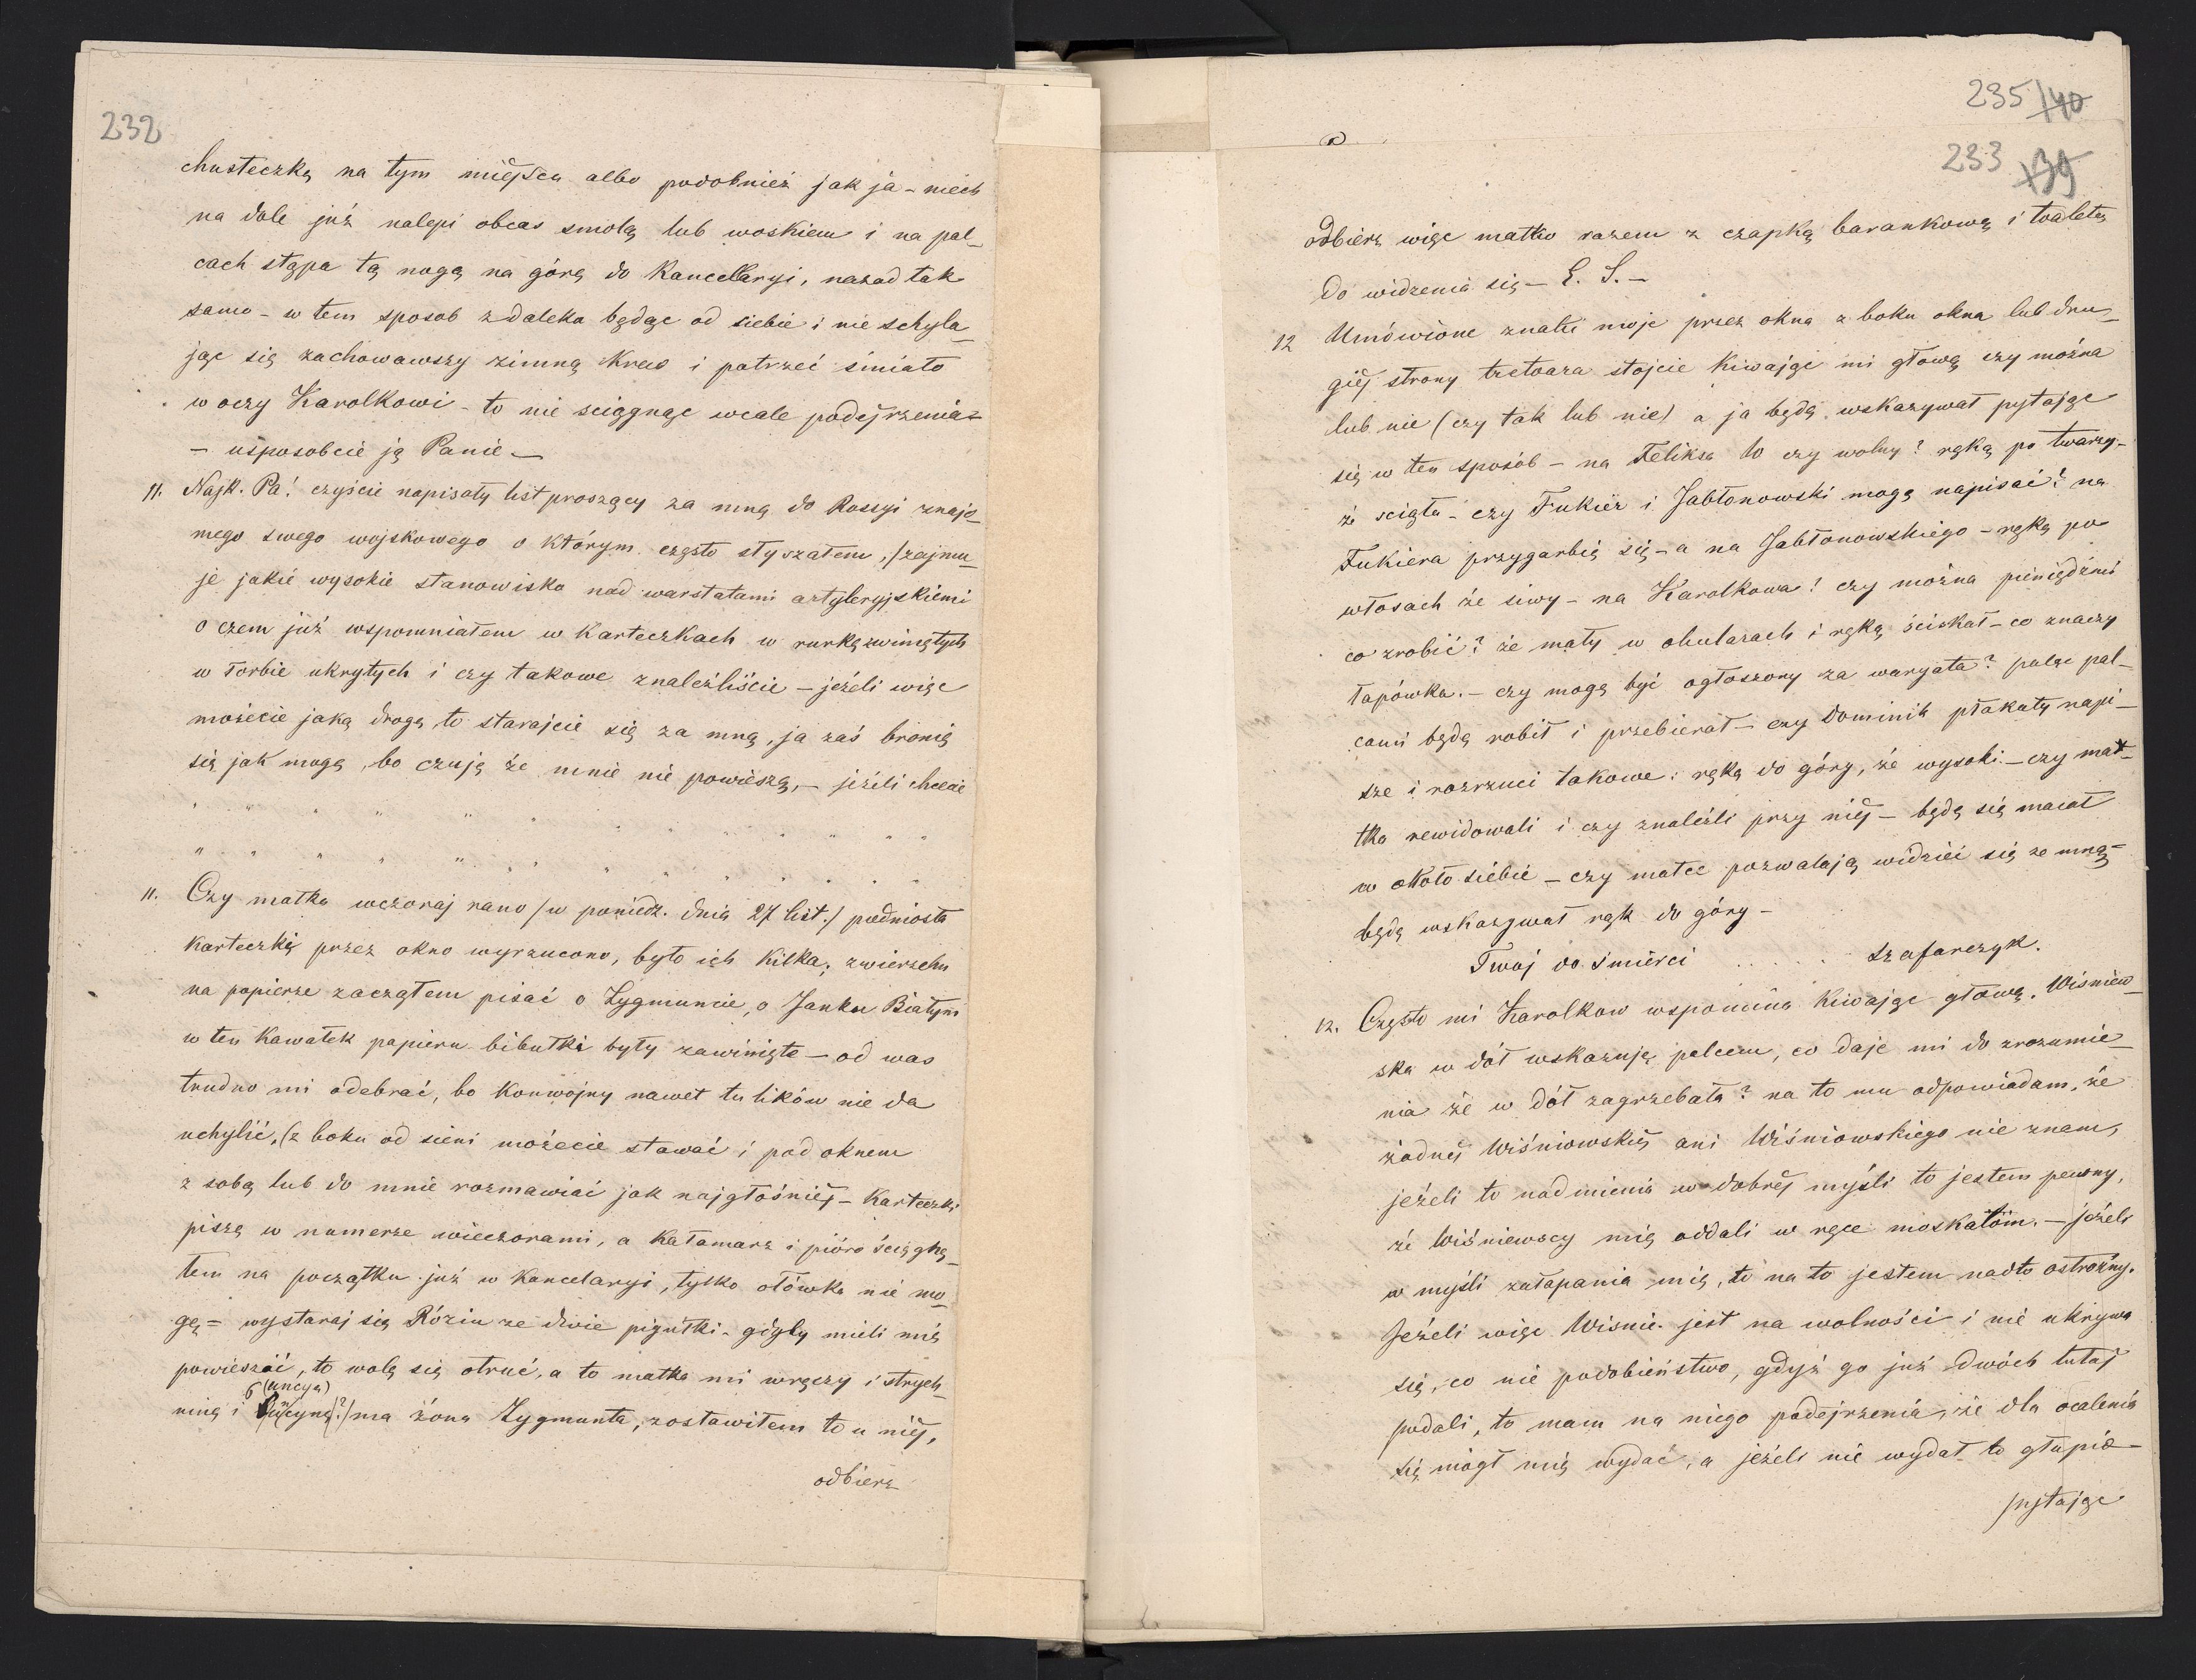 232
chusteczką na tym miéjscu albo podobnież jak ja - niech
na dole już nalepi obcas smołą lub woskiem i na pal-
cach stąpa tą nogą na górę do Kancellaryi, nazad tak
samo - w tem sposob zdaleka będąc od siebie i nie schyla-
jąc się zachowawszy zimną Krew i patrzeć śmiało
w oczy Karolkowi - to nie sciągnąc wcale podejrzenia -
- usposobcie ją Panie -
11. Najk. Pa! czyście napisały list proszący za mną do Rossyi znajo-
mego swego wojskowego o Którym często słyszałem, /zajmu-
je jakié wysokie stanowisko nad warstatami artyleryjskiemi
o czem już wspomniałem w Karteczkach w rurkę zwiniętych
w torbie ukrytych i czy takowe znaleźliście - jeżeli więc
możecie jaką drogą to starajcie się za mną, ja zaś bronię
się jak mogę, bo czuję że mnie nie powieszą, - jeżeli chcecie
" " " " " " " " " " " " "
" " " " " " " " " " " " "
11. Czy matka wczoraj rano /w poniedz. dnia 27 list./ podniosła
Karteczkę przez okno wyrzucono, było ich Kilka; zwierzchu
na papierze zacząłem pisać o Zygmuncie, o Janku Białym
w ten Kawałek papieru bibułki były zawinięte - od was
trudno mi odebrać, bo Konwojny nawet tu lików nie da
uchylić, (z boku od sieni możecie stawać i pod oknem
z sobą lub do mnie rozmawiać jak najgłośniéj - Karteczki
piszę w numerze wieczorami, a Kałamarz i pióro ściągną-
łem na początku już w Kancelaryi, tylko ołówka nie mo-
gę = wystaraj się Róziu ze dwie pigułki - gdyby mieli mię
powieszać, to wolę się otruć, a to matka mi wręczy i strych-
6 (uncyą)
ninę i (?) ma żona Zygmunta, zostawiłem to u niéj,
odbierz
235 140
233 139
odbierz więc matko razem z czapką barankową i toaletą
do widzenia się - E. S. -
12 Umówione znaki moje przez okna z boku okna lub dru-
giéj strony tretoara stojcie Kiwając mi głową czy można
lub nie (czy tak lub nie) a ja będę wskazywał pytając
się w ten sposób - na Feliksa to czy wolny? ręką po twarzy -
że ścięta - czy Fukier i Jabłonowski mogą napisać? na
Fukiera przygarbię się - a na Jabłonowskiego - ręką po
włosach że siwy - na Karolkowa! czy można pieniędzmi
co zrobić? że mały w okularach i ręką ściskał - co znaczy
łapówka. - czy mogę być ogłoszony za waryata? paląc pal-
cami będę robił i przebierał - czy Dominik płakaty napi-
sze i rozrzuci takowe: ręką do góry, że wysoki - czy mat-
tka rewidowali i czy znaleźli przy niéj - będę się macał
w około siebie - czy matce pozwalają widzieć się ze mną -
będę wskazywał rąk do góry -
Twój do śmierci . . . . . Szafarczyk.
12. Często mi Karolkow wspomina Kiwając głową. Wiśniew-
ska w dół wskazuję palcem, co daje mi do zrozumie-
nia że w dół zagrzebała? na to mu odpowiadam, że
żadnéj Wiśniowskiéj ani Wiśniowskiego nie znam,
jeżeli to nadmienia w dobréj myśli to jestem pewny,
że Wiśniewscy mię oddali w ręce moskalóm. - jeżeli
w myśli załapania mię, to na to jestem nadto ostrożny.
Jeżeli więc Wisnie. jest na wolności i nie ukrywa
się, co nie podobieństwo, gdyż go już dwóch tutaj
podali, to mam na niego podejrzenia, że dla ocalenia
się mógł mię wydać, a jeżeli nie wydał to głupio
pytając